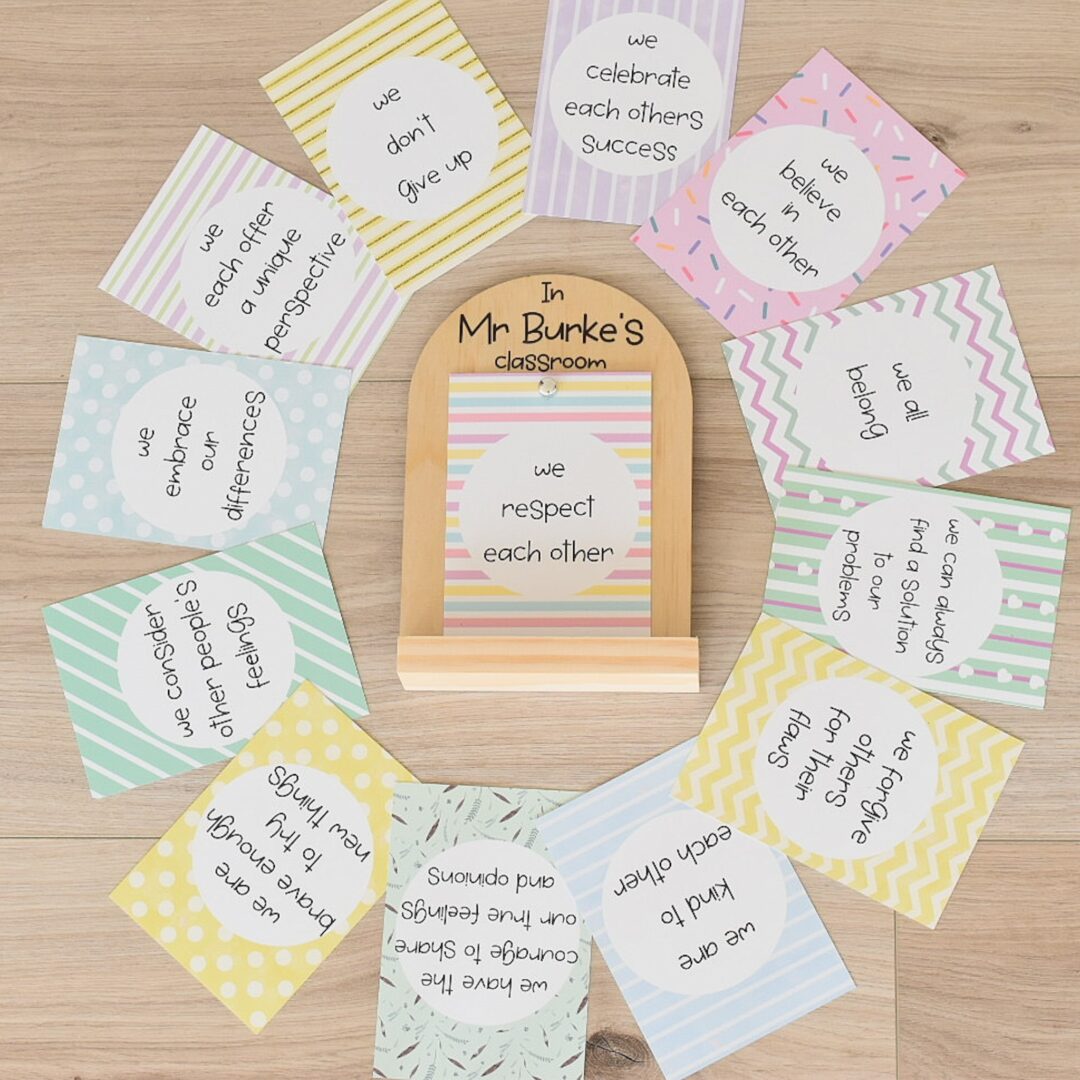 In
Mr Burke's
classroom
we
respect
each other
we
celebrate
each others
success
we
believe
in
each other
we all
belong
we can always
find a solution
to our
problems
we forgive
others
for their
flaws
we are
kind to
each other
we have the
courage to share
our true feelings
and opinions
we are
brave enough
to try
new things
we consider
other people's
feelings
we
embrace
our
differences
we
each offer
a unique
perspective
we
don't
give up